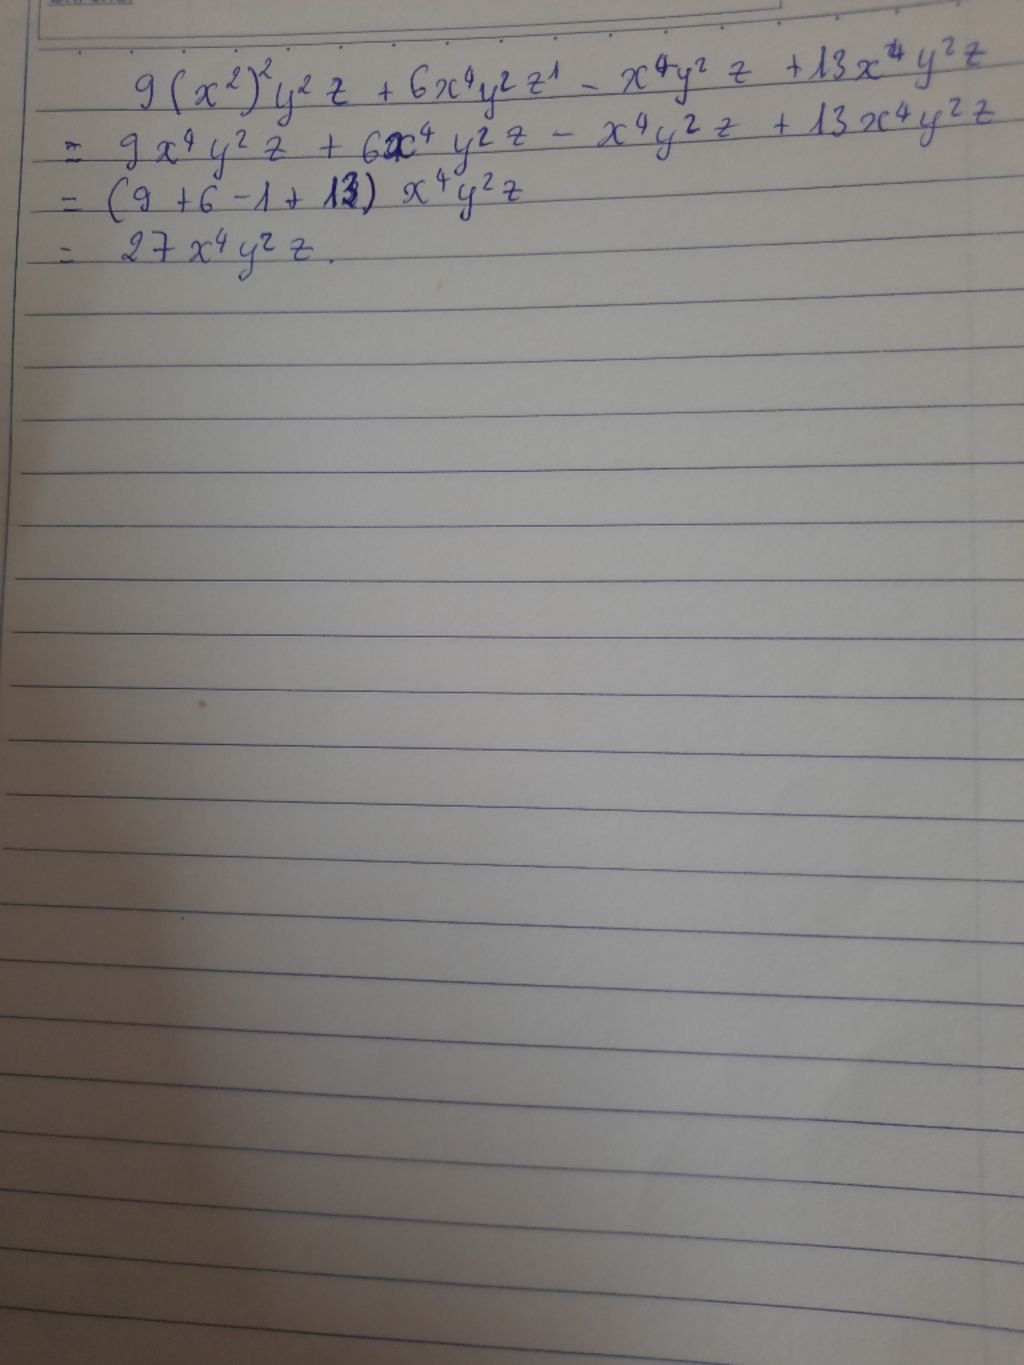 9(x²)²y²z + 6x⁴y²z¹ - x⁴y²z + 13x⁴y²z
= 9x⁴y²z + 6x⁴y²z - x⁴y²z + 13x⁴y²z
= (9 + 6 - 1 + 13) x⁴y²z
= 27x⁴y²z.